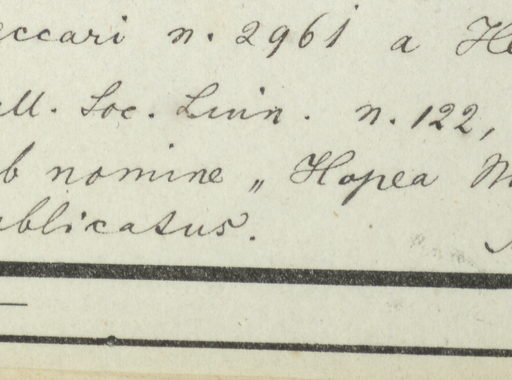 eccari n. 2961 a He
ll. Soc. Linn. n. 122,
b nomine „ Hopea M
ublicatus.